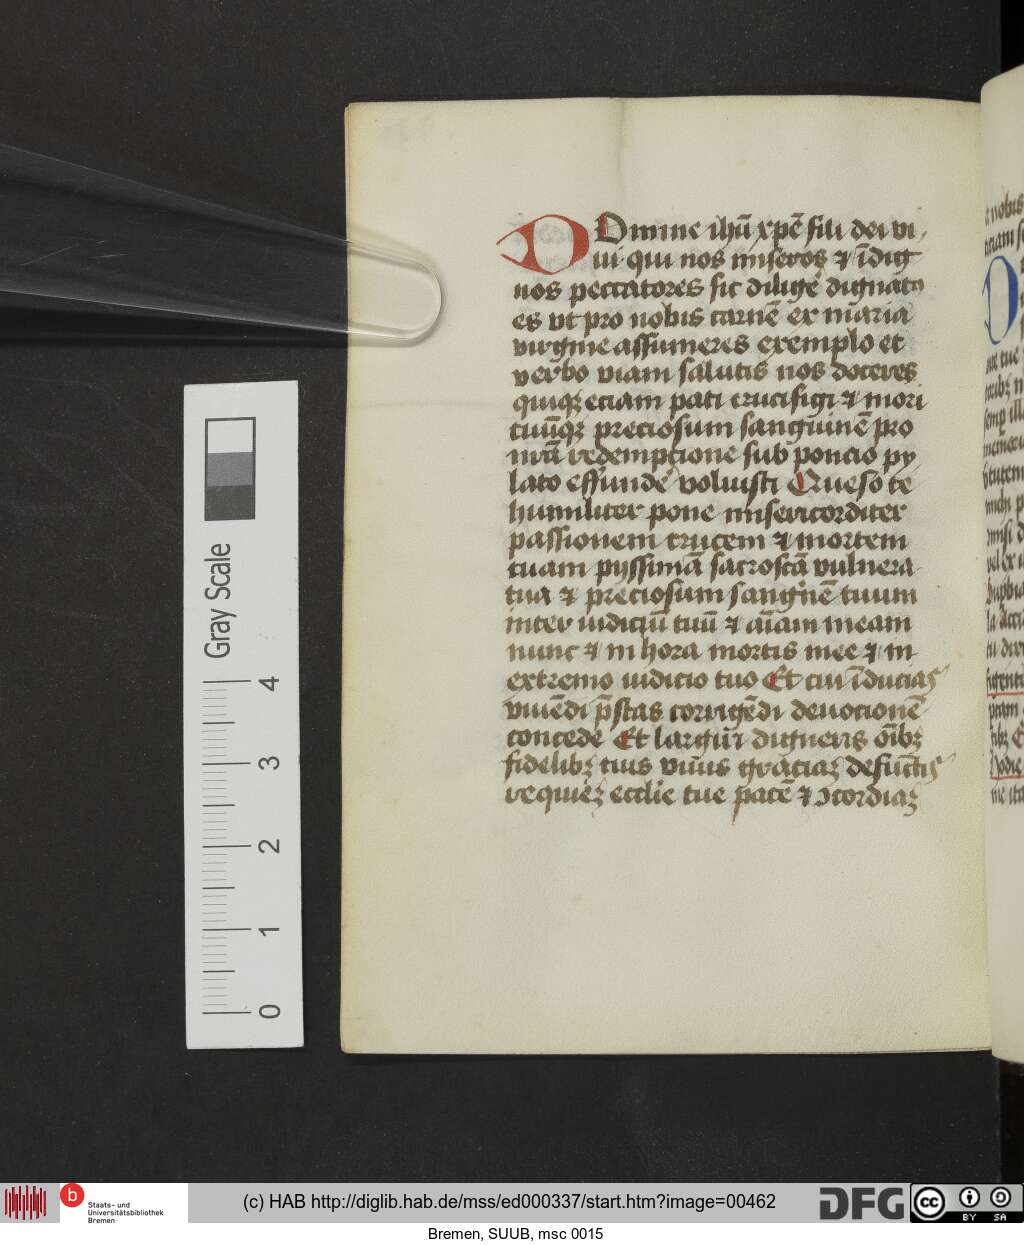 DOmine ihū xp̄e fili dei vi
ui qui nos miseros ⁊ īdig
nos peccatores sic diligē dignatꝰ
es vt pro nobis carnē ex maria
virgine assumeres exemplo et
verbo viam salutis nos doceres
quiqꝫ etiam pati crucifigi ⁊ mori
tuūqꝫ preciosum sanguinē pro
nr̄a redempcione sub poncio py
lato effundē voluisti Queso te
humiliter pone misericorditer
passionem crucem ⁊ mortem
tuam pyssimā sacroscā vulnera
tua ⁊ preciosum sangnē tuum
inter iudiciū tuū ⁊ aīam meam
nunc ⁊ in hora mortis mee ⁊ in
extremo iudicio tuo Et cui īducias
viuēdi p̄stas corrigēdi deuocionē
concede Et largiri digneris oībꝫ
fidelibꝫ tuis viuis graciaꝫ defūctis
requieꝫ ecclie tue pacē ⁊ ꝯcordiaꝫ
Gray Scale
4
3
2
1
0
b
Staats- und
Universitätsbibliothek
Bremen
(c) HAB http://diglib.hab.de/mss/ed000337/start.htm?image=00462
DFG
cc
BY SA
Bremen, SUUB, msc 0015